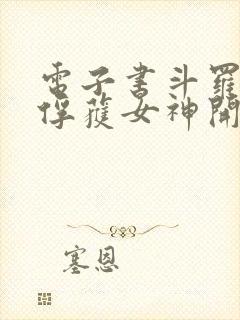 電子書斗羅
俘獲女神開
塞恩